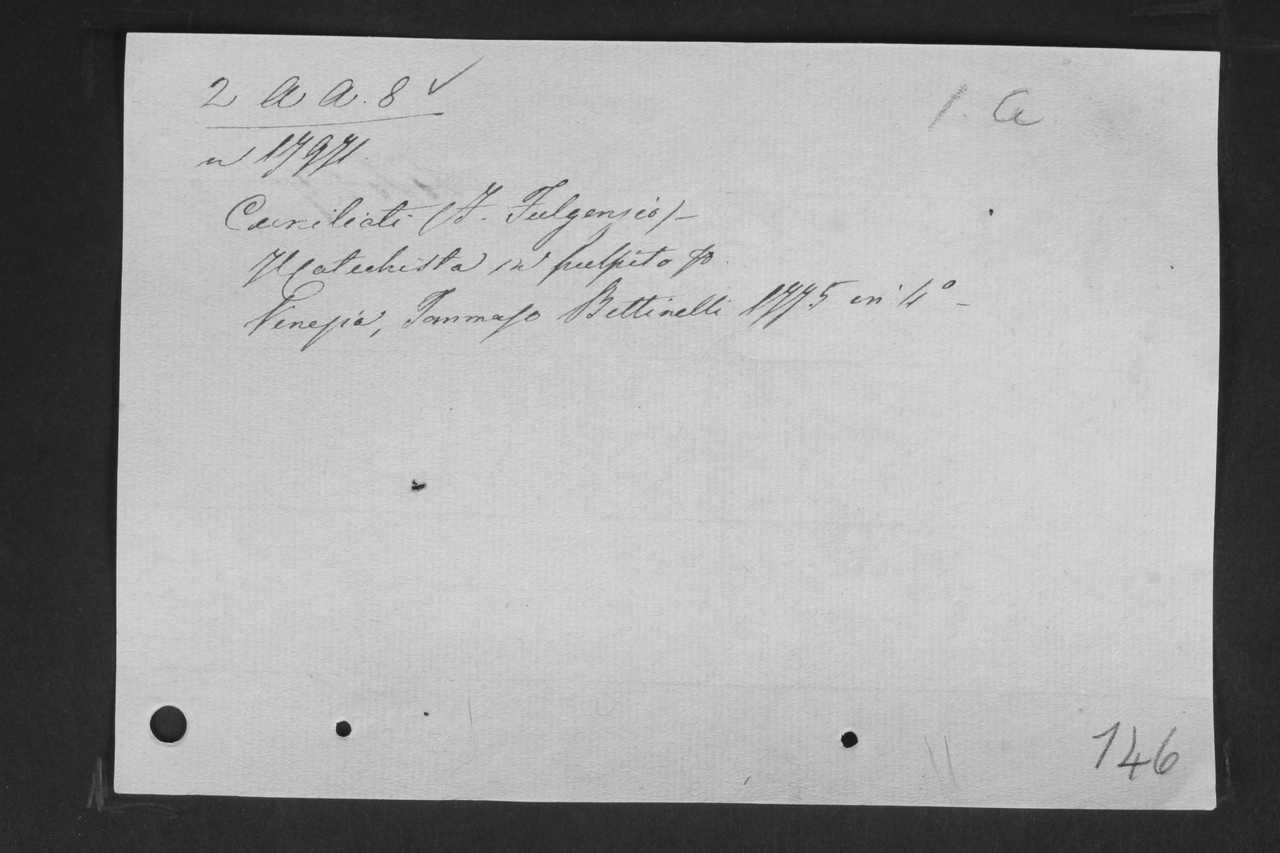 2 A A. 8 ✓
1. a
n 17971
Cuniliati (F. Fulgenzio) –
Il Catechista in pulpito
Venezia, Tommaso Bettinelli 1775 in 4º –
146